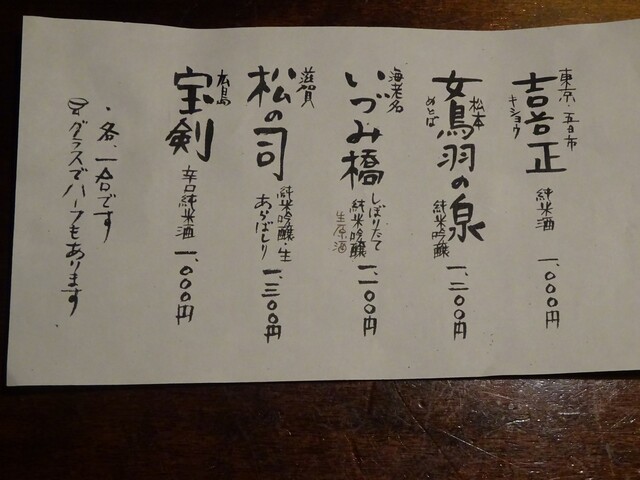 東京・五日市
吉喜正
キショウ
純米酒 一、〇〇〇円
松本
女鳥羽の泉
めとば
純米吟醸 一、二〇〇円
海老名
いづみ橋
しぼりたて
純米吟醸
生原酒
一、一〇〇円
滋賀
松の司
純米吟醸・生
あらばしり
一、三〇〇円
広島
宝剣
辛口純米酒 一、〇〇〇円
・各、一合です
グラスでハーフもあります